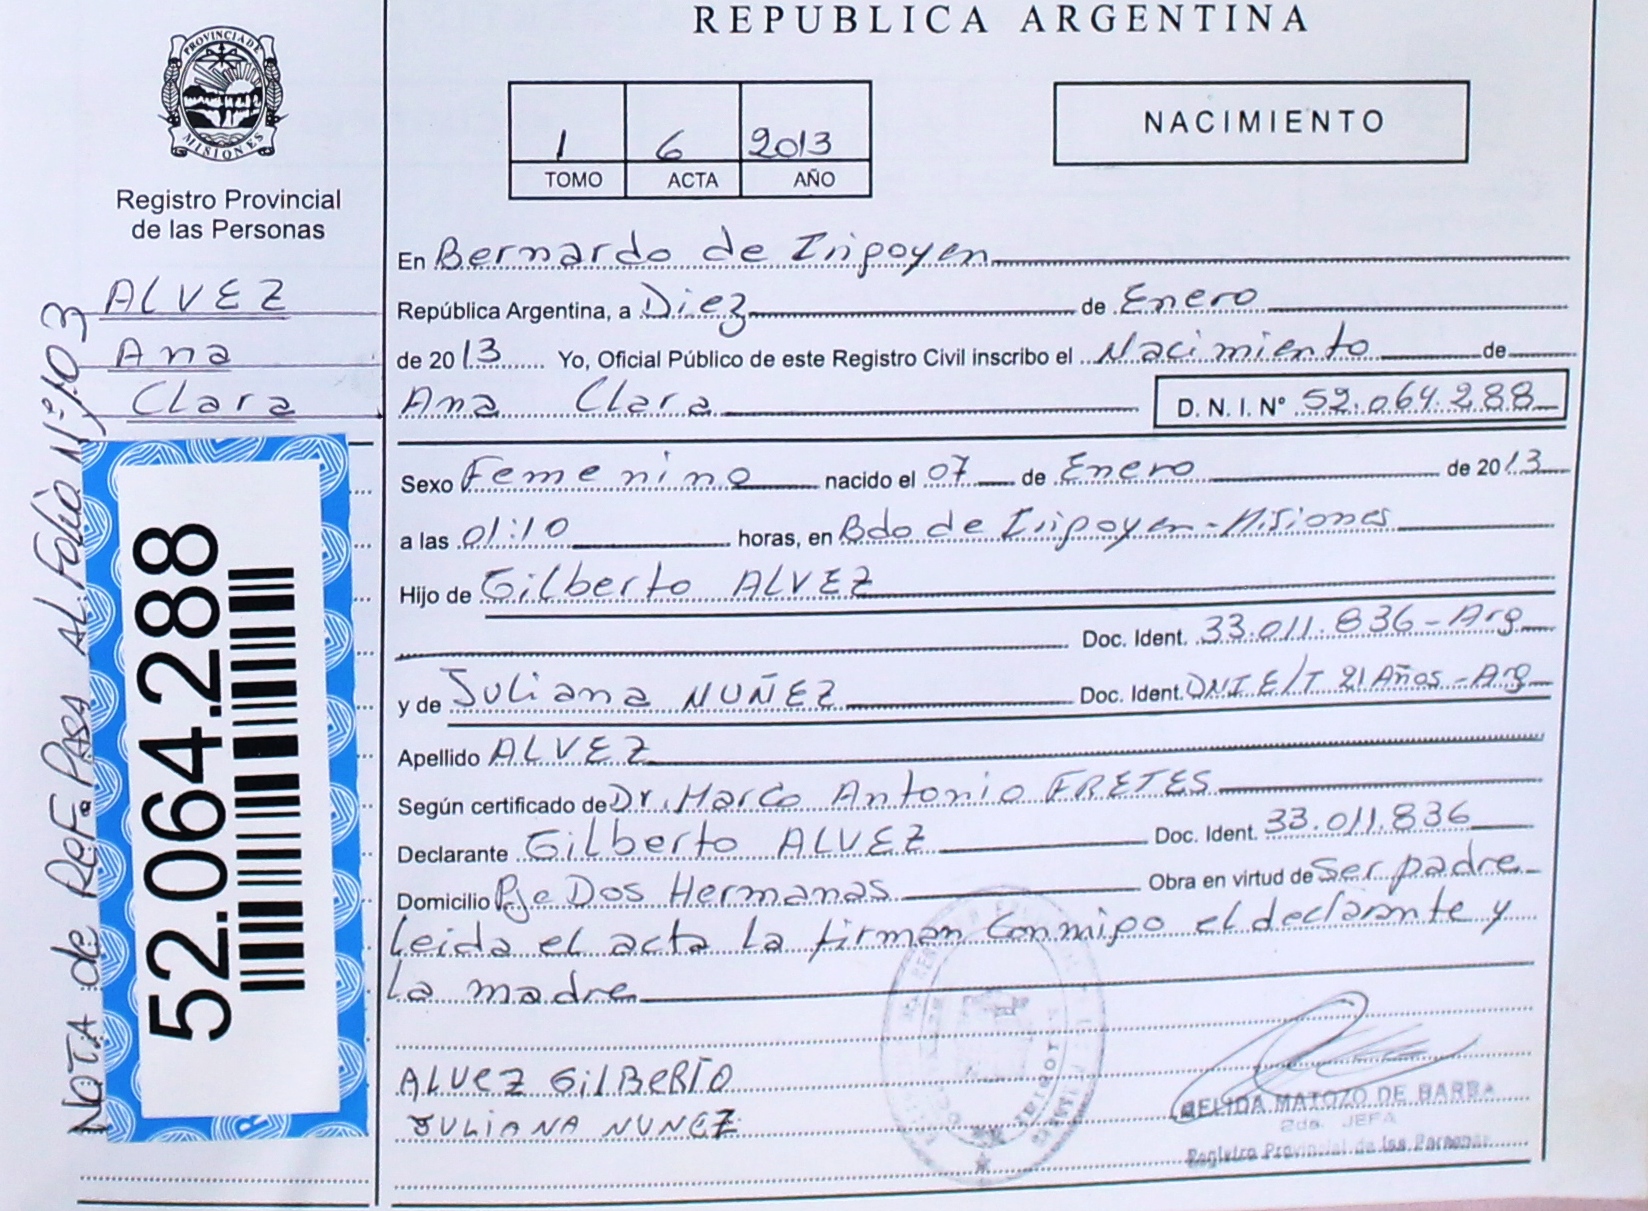 REPUBLICA ARGENTINA
PROVINCIA DE
MISIONES
Registro Provincial
de las Personas
1 6 2013
TOMO ACTA AÑO
NACIMIENTO
ALVEZ
Ana
Clara
NOTA de Ref. PASA AL Folio Nº 103
52.064.288
En Bernardo de Irigoyen
República Argentina, a Diez de Enero
de 2013 Yo, Oficial Público de este Registro Civil inscribo el Nacimiento de
Ana Clara D.N.I. Nº 52.064.288
Sexo Femenino nacido el 07 de Enero de 2013
a las 01:10 horas, en Bdo de Irigoyen - Misiones
Hijo de Gilberto ALVEZ
Doc. Ident. 33.011.836 - Arg
y de Juliana NUÑEZ Doc. Ident. DNI E/T 21 Años - Arg
Apellido ALVEZ
Según certificado de Dr. Marco Antonio FRETES
Declarante Gilberto ALVEZ Doc. Ident. 33.011.836
Domicilio Pje Dos Hermanas Obra en virtud de ser padre
Leida el acta la firman conmigo el declarante y
la madre
ALVEZ GILBERTO
JULIANA NUNEZ
MATOZO DE BARBA
2da. JEFA
Registro Provincial de las Personas